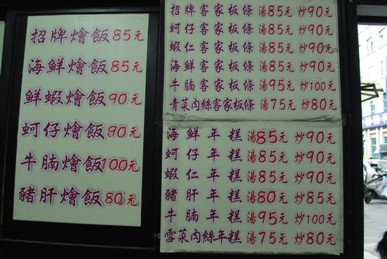 招牌燴飯85元
海鮮燴飯85元
鮮蝦燴飯90元
蚵仔燴飯90元
牛腩燴飯100元
豬肝燴飯80元
招牌客家板條 湯85元 炒90元
海鮮客家板條 湯85元 炒90元
蚵仔客家板條 湯85元 炒90元
蝦仁客家板條 湯85元 炒90元
牛腩客家板條 湯95元 炒100元
青菜肉絲客家板條 湯75元 炒80元
海鮮年糕 湯85元 炒90元
蚵仔年糕 湯85元 炒90元
蝦仁年糕 湯85元 炒90元
豬肝年糕 湯80元 炒85元
牛腩年糕 湯95元 炒100元
雪菜肉絲年糕 湯75元 炒80元